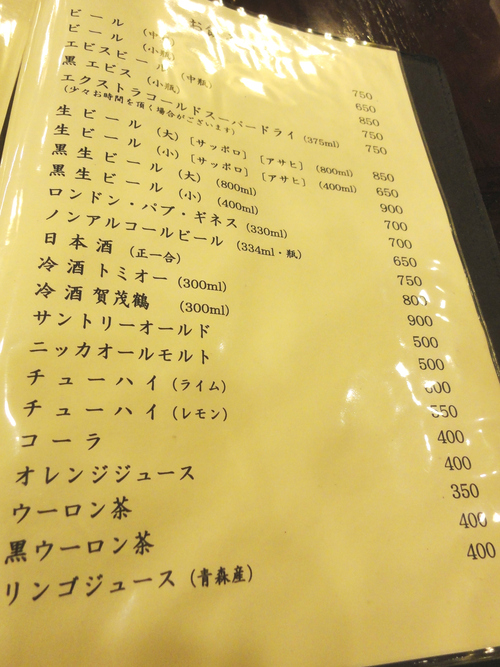 ビール (中瓶) 750
ビール (小瓶) 650
エビスビール (中瓶) 850
黒エビス (小瓶) 750
エクストラコールドスーパードライ (375ml) 750
(少々お時間を頂く場合がございます)
生ビール (大) [サッポロ] [アサヒ] (800ml) 850
生ビール (小) [サッポロ] [アサヒ] (400ml) 650
黒生ビール (大) (800ml) 900
黒生ビール (小) (400ml) 700
ロンドン・パブ・ギネス (330ml) 700
ノンアルコールビール (334ml・瓶) 650
日本酒 (正一合) 750
冷酒トミオー (300ml) 800
冷酒賀茂鶴 (300ml) 900
サントリーオールド 500
ニッカオールモルト 500
チューハイ (ライム)
チューハイ (レモン) 550
コーラ 400
オレンジジュース 400
ウーロン茶 350
黒ウーロン茶 400
リンゴジュース (青森産) 400